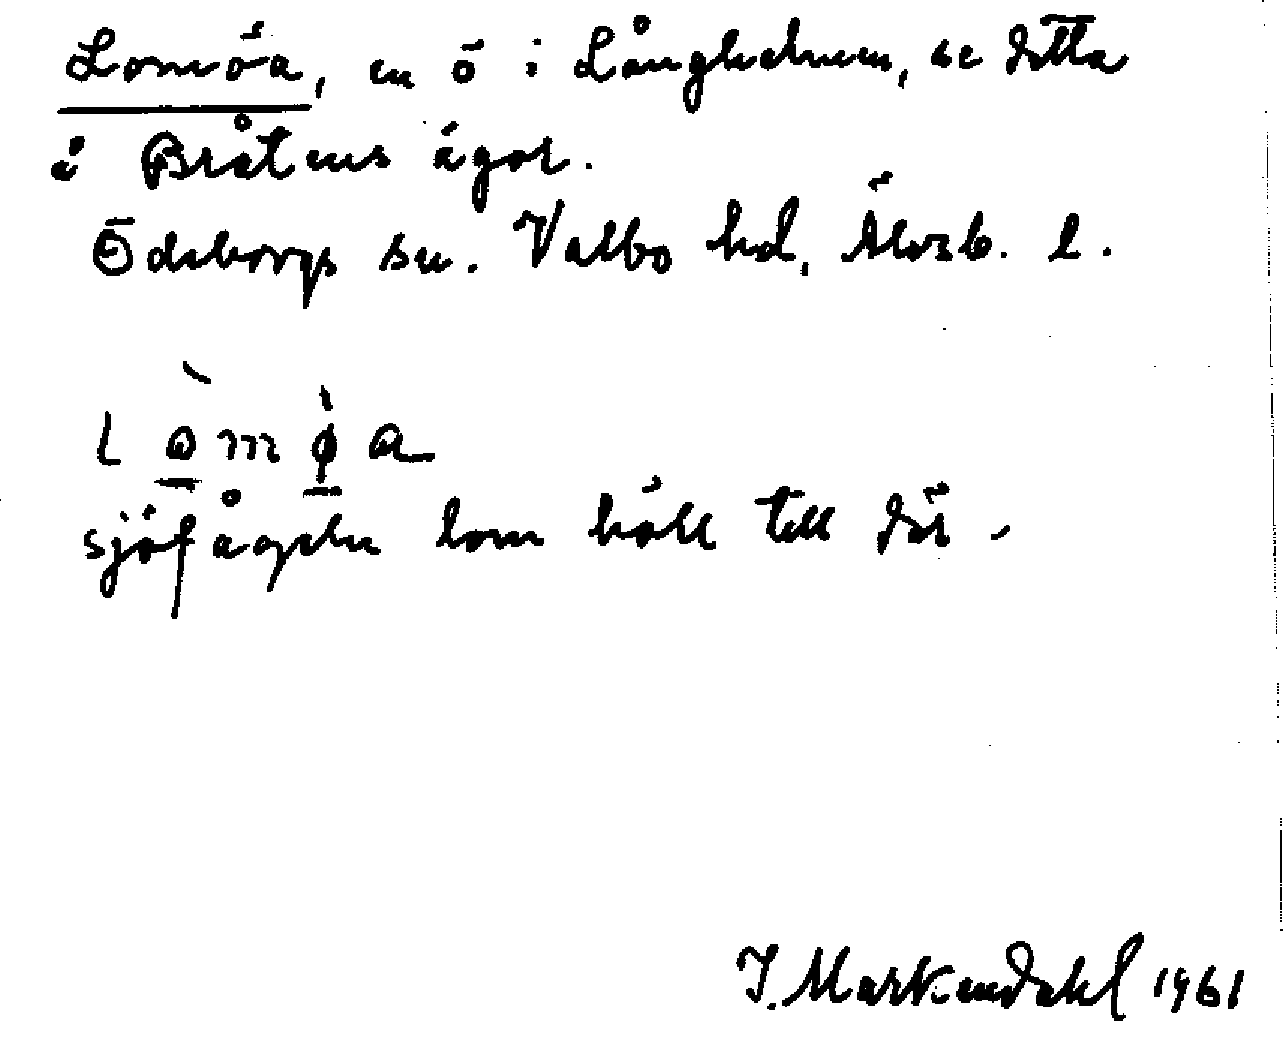 Lomöa, en ö i Långhalmen, se detta
i Bråtens ägor.
Ödeborgs sn. Valbo hd, Älvsb. l.
lòmø̀a
sjöfågeln lom höll till där.
J. Markendahl 1961